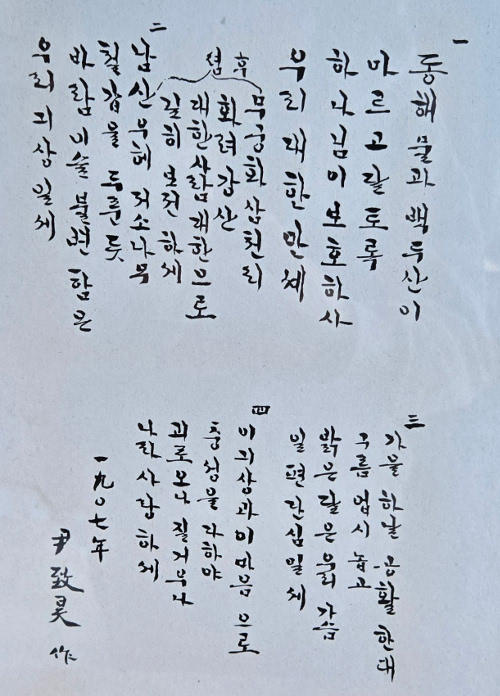 一
동해물과 백두산이
마르고 달토록
하나님이 보호하사
우리 대한만세
후렴
무궁화 삼천리
화려강산
대한사람 대한으로
길히 보전하세
二
남산우헤 저 소나무
철갑을 두룬 듯
바람이슬 불변함은
우리 긔상일세
三
가을하날 공활한대
구름업시 놉고
밝은달은 우리가슴
일편단심일세
四
이긔상과 이마음으로
충성을 다하야
괴로오나 질거우나
나라사랑하세
一九〇七年
尹致昊 作